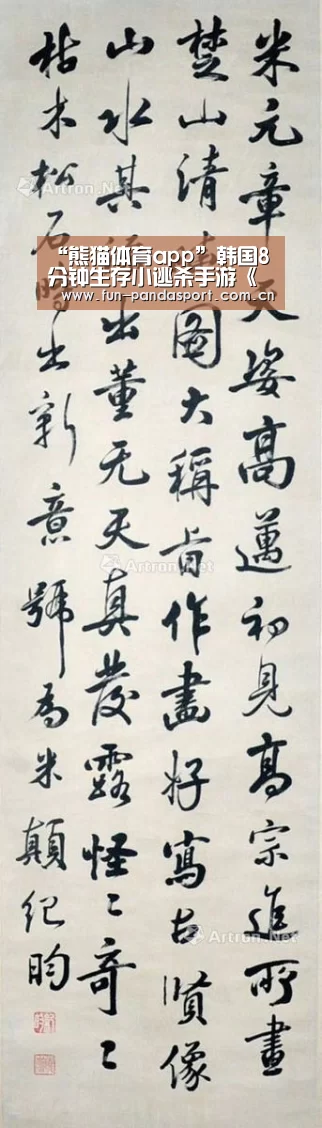 米元章天姿高邁初見高宗進所畫
楚山清圖大稱旨作畫好寫古賢像
山水其出董无天真發露怪〻奇〻
枯木松石時出新意號為米顛紀昀
“熊猫体育app”韩国8
分钟生存小逃杀手游《
www.fun-pandasport.com.cn
Artron.Net
Artron.Net
Artron.Net
Artron.Net